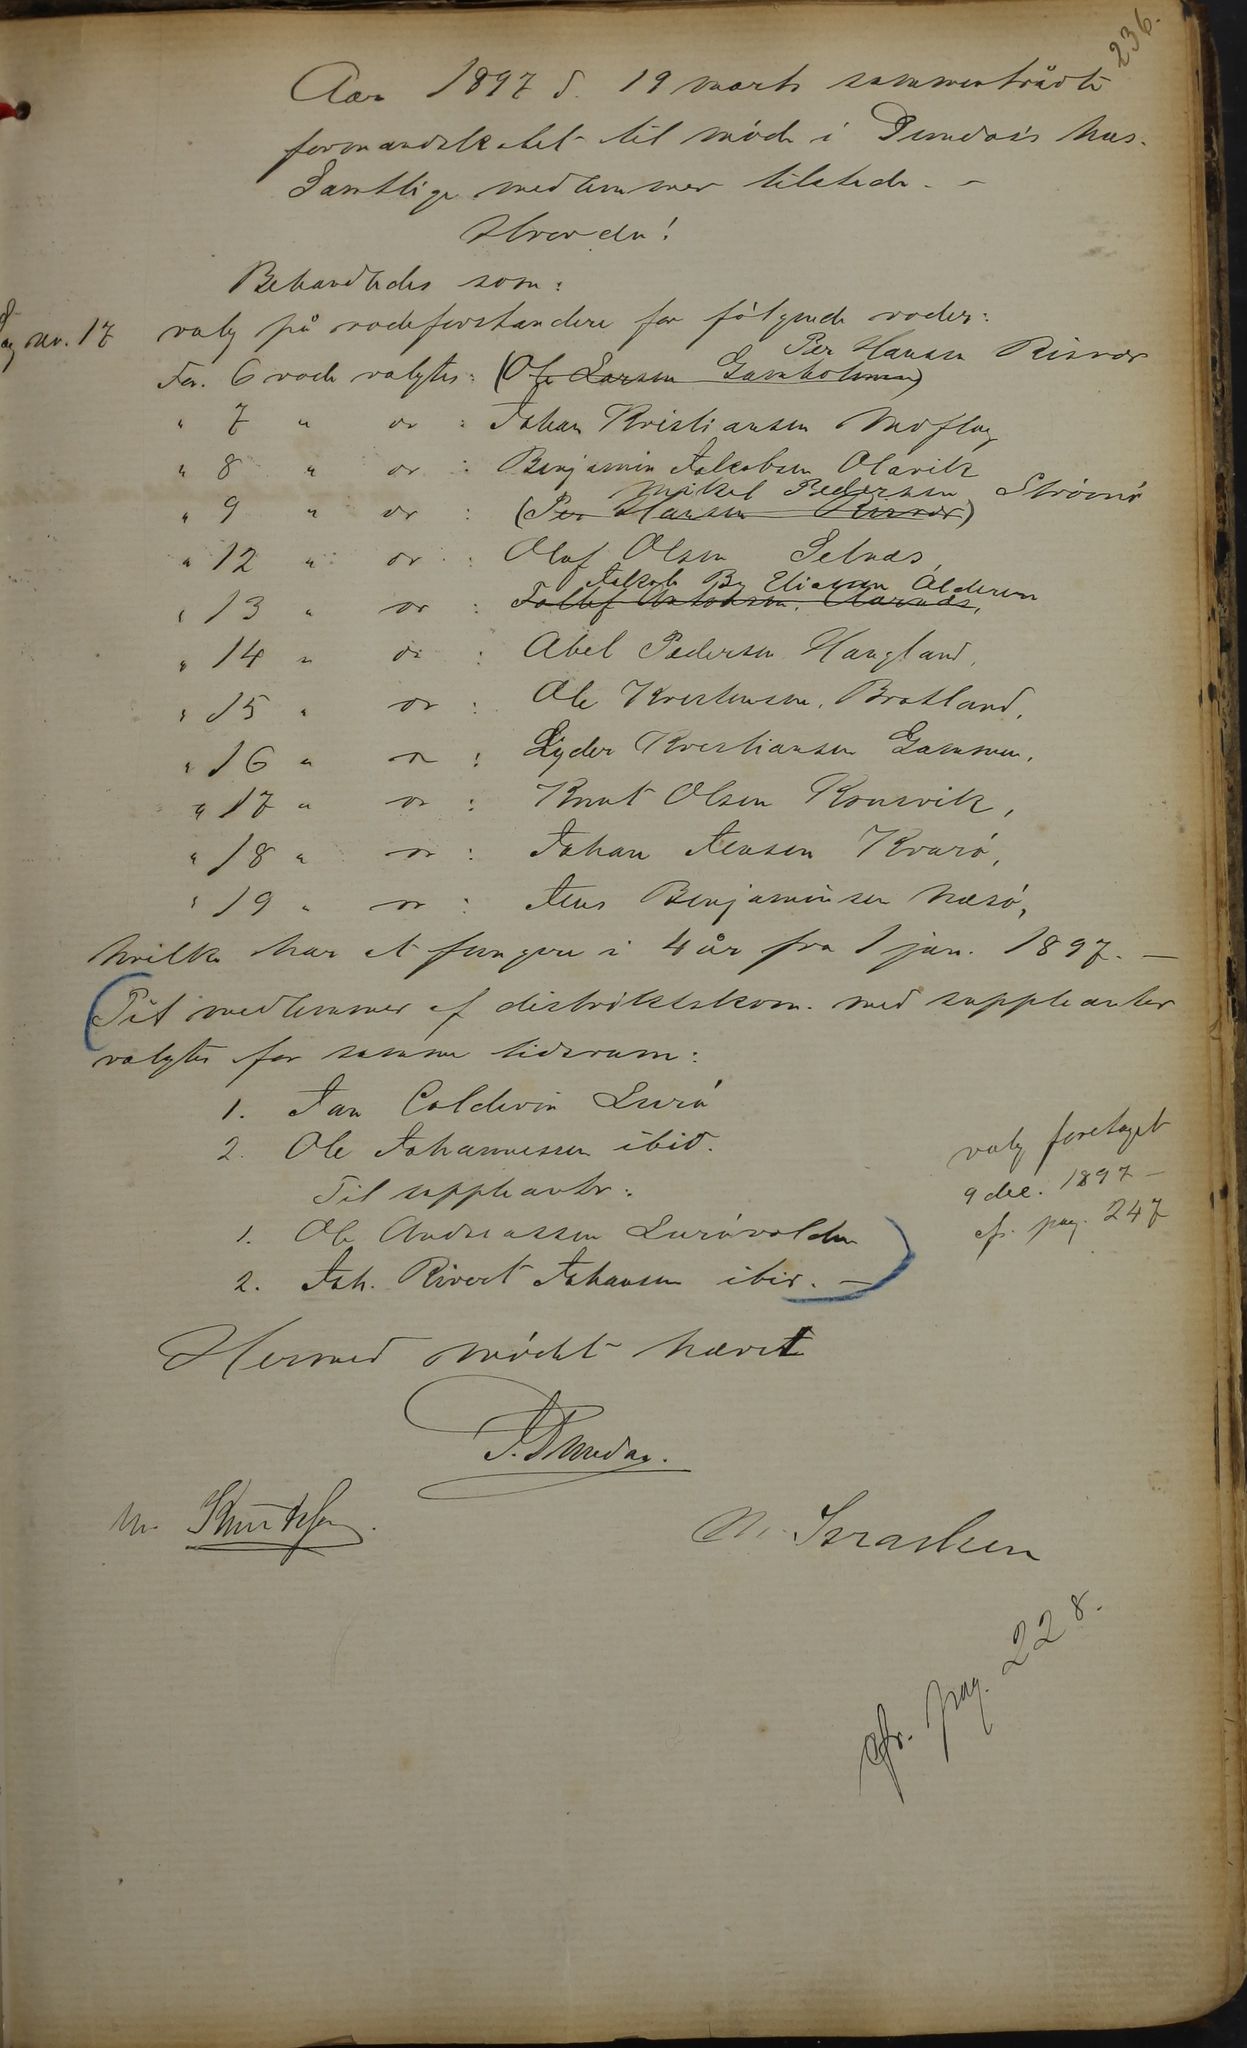 236.
Aar 1897 d. 19 marts sammentrådte
formandskabet til møde i Dundas's hus.
Samtlige medlemmer tilstede. -
Hvorda!
Behandledes som:
Sag nr. 17 valg på rodeforstandere for følgende roder:
Per Hansen Risvær
For 6 rode valgtes: (Ole Larsen Gavnholmen)
" 7 " " or : Johan Kristiansen Moflag
" 8 " or : Benjamin Jakobsen Olavik
Mikel Pedersen Strömö
" 9 " or : (Per Hansen Risvær)
" 12 " or : Olaf Olsen Selnæs,
Jakob B. Eliasen Alderen
" 13 " or : Tollef Antonsen, Aarnæs,
" 14 " or : Abel Pedersen Haugland,
" 15 " or : Ole Kristensen, Bratland,
" 16 " or : Lyder Kristiansen Gammen,
" 17 " or : Knut Olsen Konsvik,
" 18 " or : Johan Jensen Kvarø,
" 19 " or : Jens Benjaminsen Næsø,
hvilke har at fungere i 4 år fra 1 jan. 1897. -
(Til medlemmer af distriktskom. med suppleanter
valgtes for samme tidsrum:
1. Jan Coldevin Lurö
2. Ole Johannessen ibid.
Til suppleanter:
1. Ole Andreassen Lurövolden
2. Joh. Rivert Johansen ibid. -)
valg foretaget
9 dec. 1897 -
cfr. pag. 247
Hermed mödet hævet
I. Dundas.
M. Knutsen.
N. Israelsen
cfr. pag. 228.